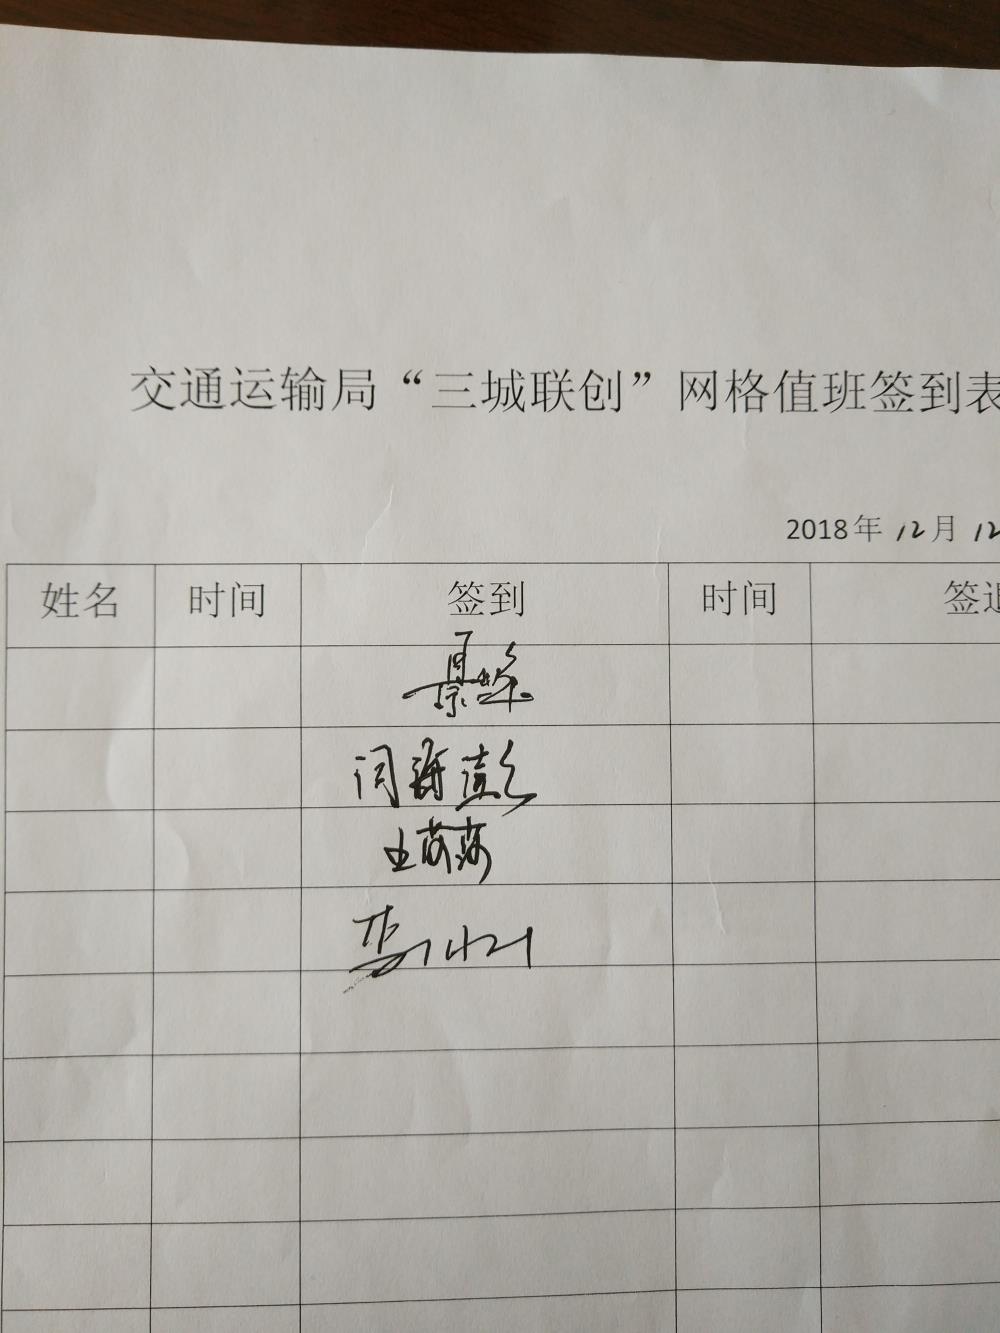 交通运输局“三城联创”网格值班签到表
2018年12月12
姓名 时间 签到 时间 签退
闫海澎
王莎莎